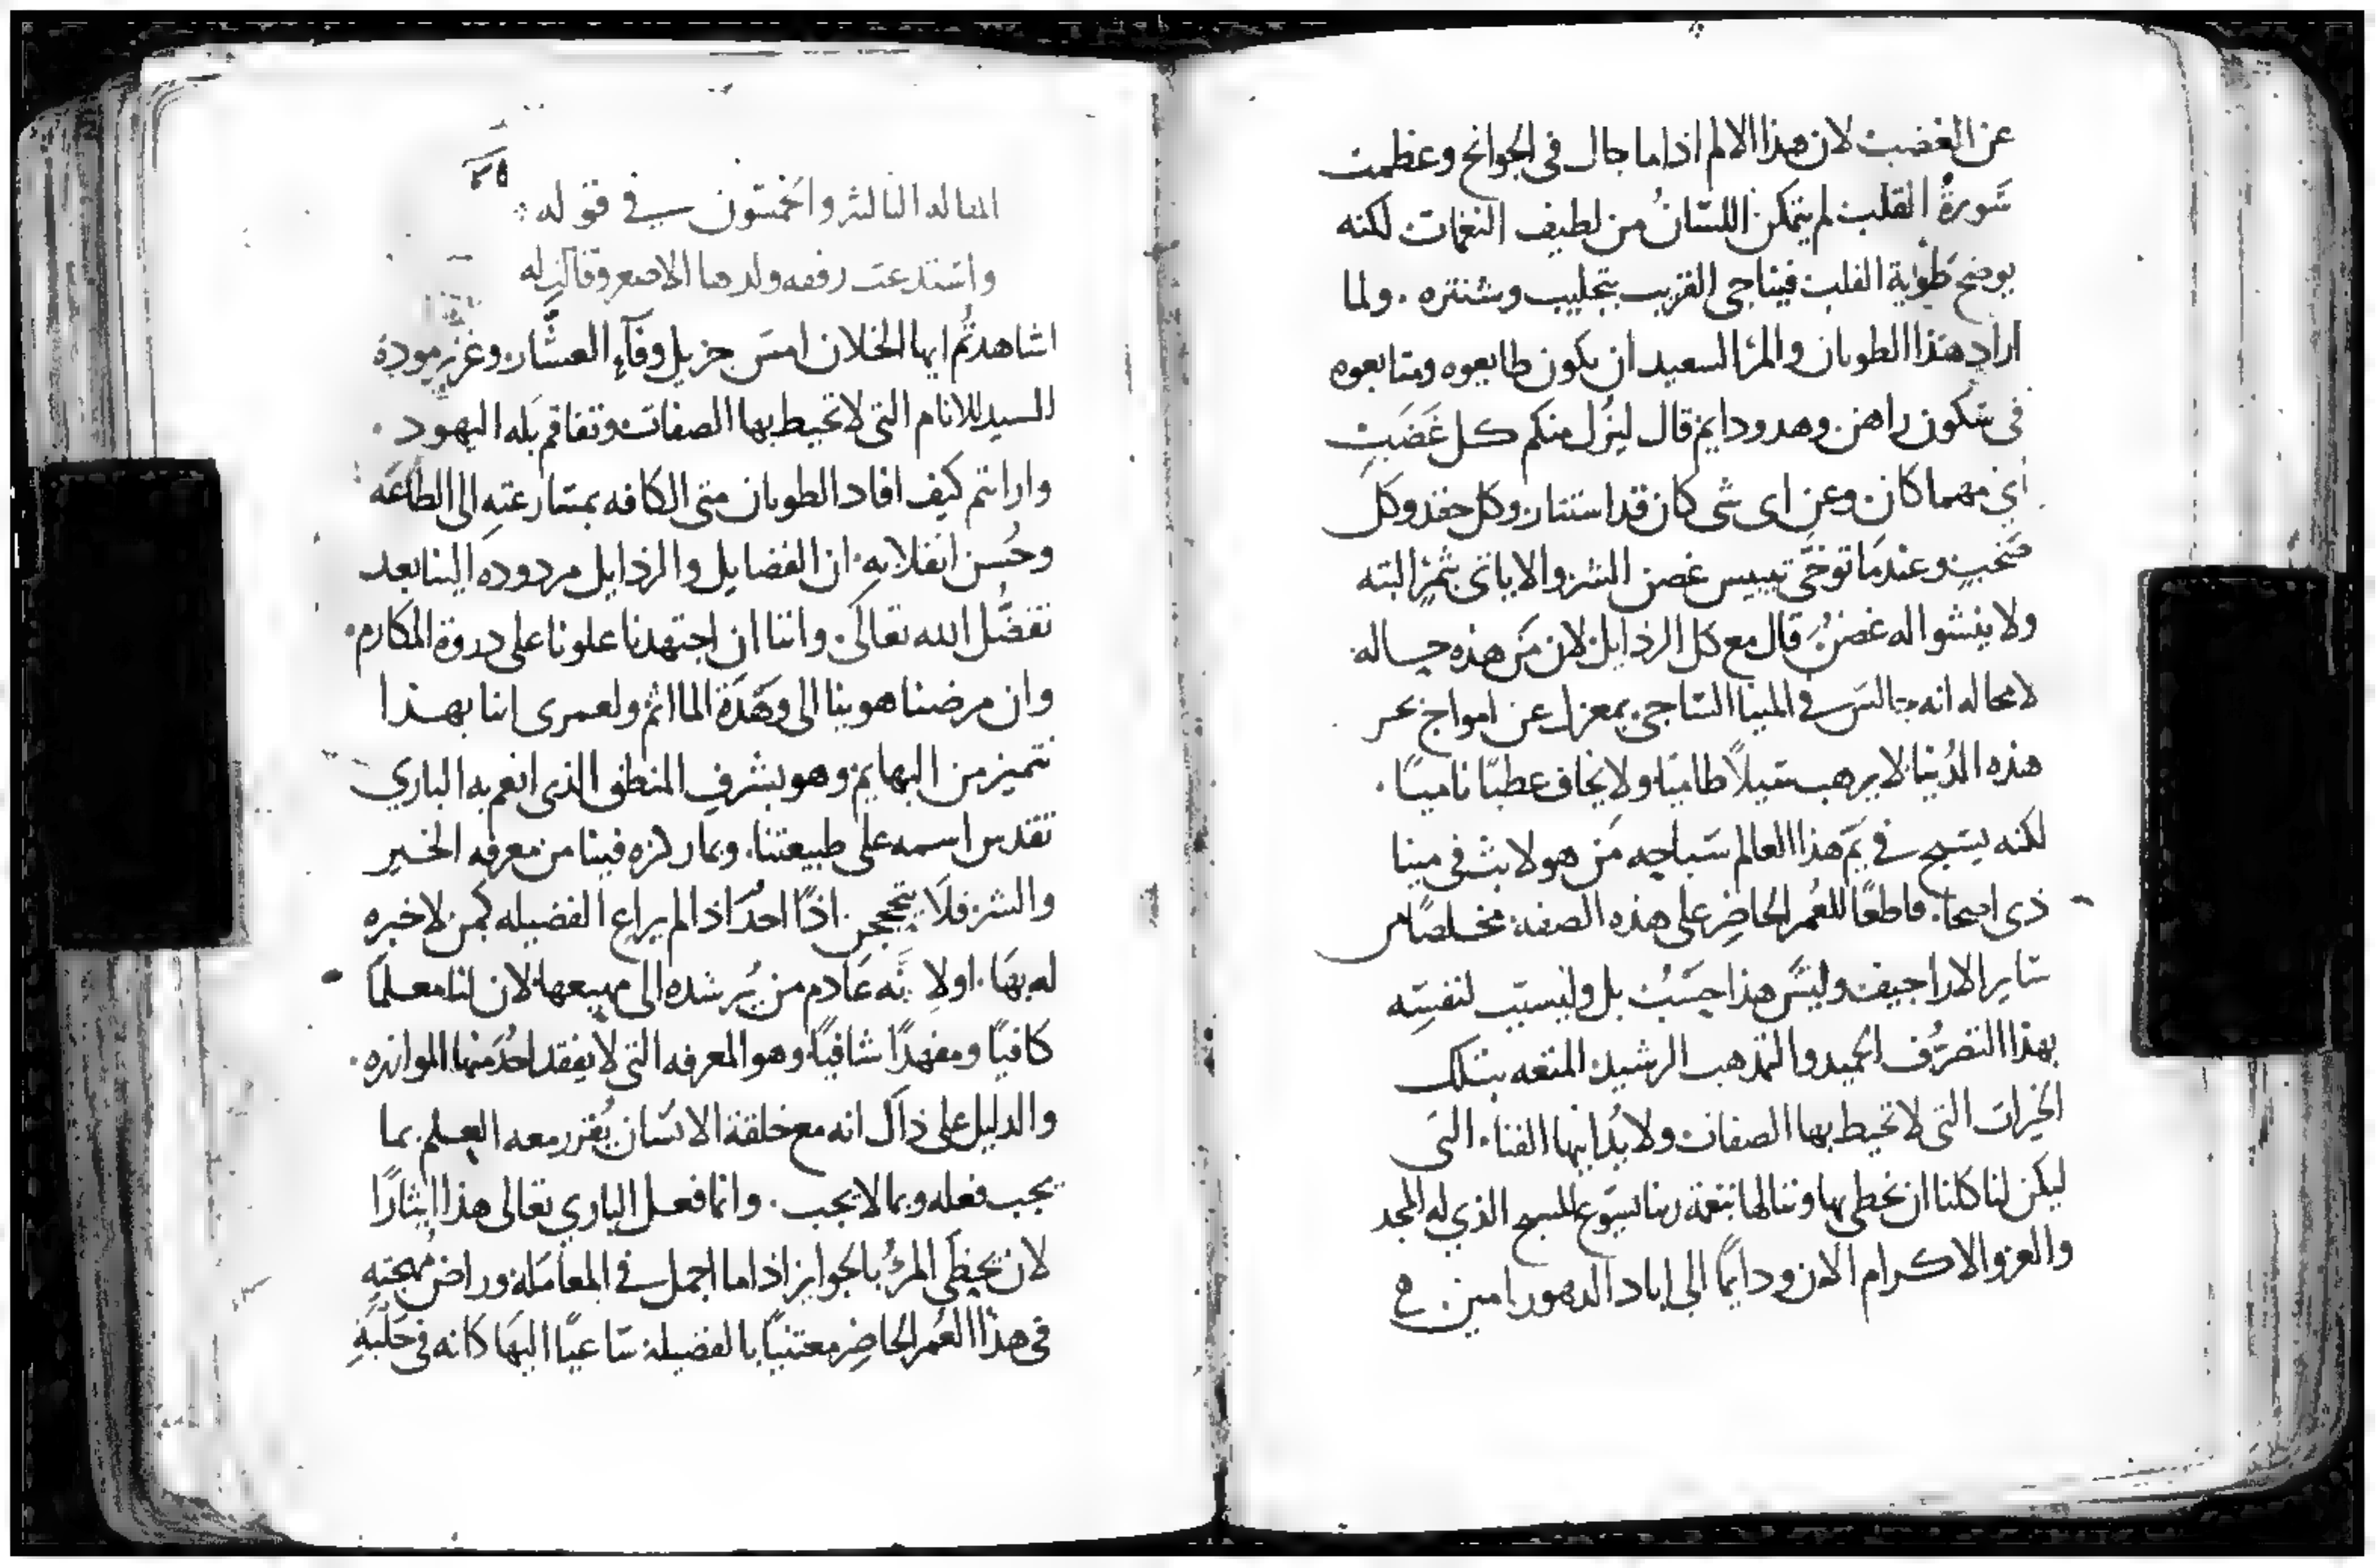 عن الغضب لان هذا الالم اذا ما جال فى الجوانح وعظمت
سَورةُ القلب لم يتمكن اللسانُ من لطيف النغمات لكنه
يوضح طَوْية القلب فيناجى القريب بتجليب وشنتره . ولما
اراد هذا الطوبان والمرا السعيد ان يكون طايعوه ومتابعوه
فى سكون راهن وهدو دايم قال ليُزل منكم كل غَضَبٍ
اي مهما كان وعن اى شى كان قد استنار وكل حقد وكل
صَخبٍ وعندمَا توخَّى تيبيس غصن الشر والاياتى بثمرٍ البته
ولا ينشوا له غصنٌ قال مع كل الرذايل لان مَن هذه حاله
لا محاله انه جالس فى المينا الساجى بمعزل عن امواج بحر
هذه الدُنيا لا يرهب سيلاً طاميًا ولا يخاف عطبًا ناميًا .
لكنه يسبح فى يَم هذا العالم سَباحِه مَن هو لابث فى مينا
ذى اصحا . قاطعًا للعُمر الحاضِر على هذه الصفه مخلصًا من
ساير الاراجيف وليسَ هذا حَسْبُ بل وليسبب لنفسِه
بهذا التصرُّف الحميد والتمذهب الرشيد المتعه بتلك
الخيرات التى لا تحيط بها الصفات ولا يُدانيها الفنا . التى
ليكن لنا كلنا ان نحظى بها وننالها بنعمة ربنا يسوع المسيح الذي له المجد
والعز والاكرام الان ودايمًا الى اباد الدهور امين .
المقاله الثالثه والخمسون فى قوله :
واستدعت رفقه ولدها الاصغر وقالت له
اشاهدتُم ايها الخلان امسَ جزيل وفآءِ العشَّار وغزير مودة
السيد للانام التى لا تحيط بها الصفات وتفاقم بَله اليهود .
وارايتم كيف افاد الطوبان متى الكافه بمسارعتهِ الى الطاعَه
وحُسن انقلابهِ . ان الفضايل والرذايل مردوده الينا بعد
تفضُّل الله تعالى . واننا ان اجتهدنا علونا على دروة المكارم .
وان مرضنا هوينا الى وَهَدَة الماائم ولعمرى اننا بهذا
نتميز من البهايم وهو بشرفِ المنطق الذى انعم به الباري
تقدس اسمه على طبيعتنا . وبما ركزه فينا من معرفه الخير
والشر فلا يتحججن اذًا احدٌ اذا لم يراع الفضيله كمن لا خبره
له بهَا . اولا نَّه عَادم من يُرشده الى مهيعها . لان لنا معلمًا
كافيًا ومفهدًا شافيًا . وهو المعرفه التى لا يفقد احدٌ منها الموازره .
والدليل على ذاك انه مع خلقة الانسان يُقرر معه العلم بما
يجب فعله وبما لا يجب . وانما فعل الباري تعالى هذا ايثارًا
لان يحظَى المرءُ بالجوايز اذا ما اجمل فى المعاملة وراض مُهجتهِ
فى هذا العُمر الحاضِر معتنيًا بالفضيلة ساعيًا اليهَا كانه فى حَلْبَةٍ